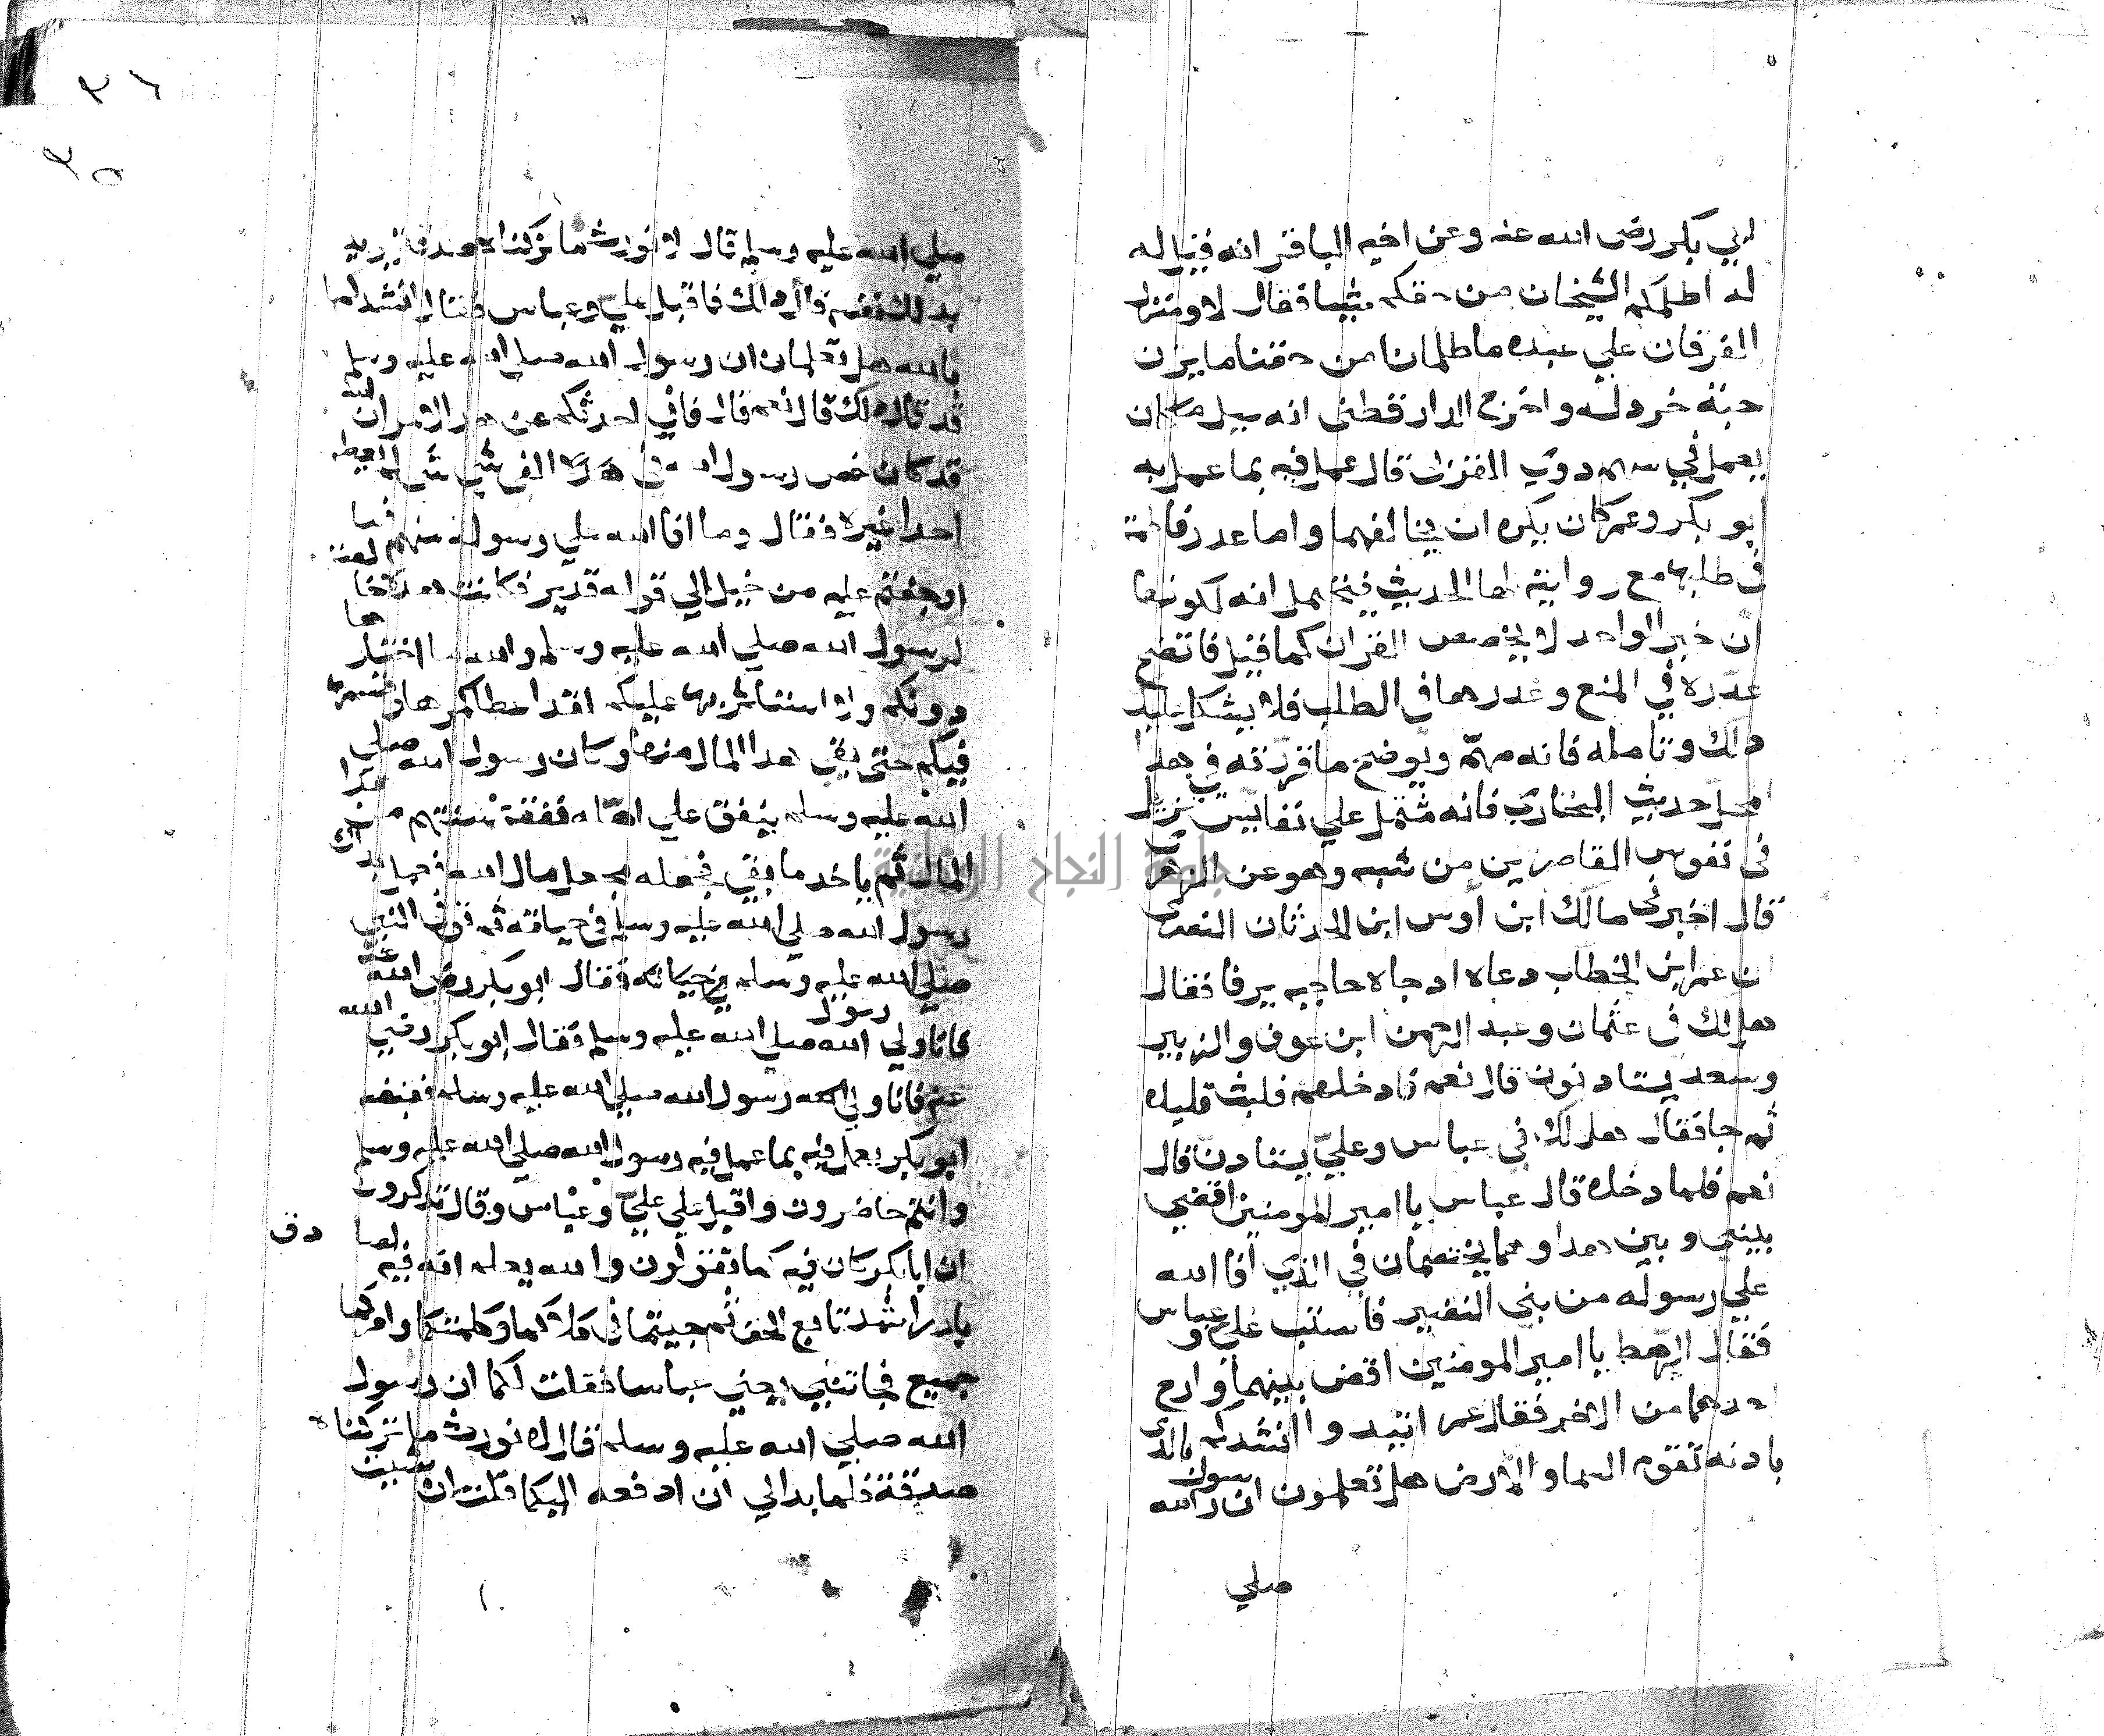 ابي بكر رضى الله عنه وعن اخيه الباقر انه قيل له
له اظلمكم الشيخان من حقكم شيا فقال لا ومنزل
الفرقان علي عبده ما ظلمانا من حقنا ما يزن
حبة خردله واخرج الدارقطنى انه سيل ما كان
يعمل في سهم ذوي القربى قال عمل فيه بما عمل به
ابو بكر وعمر كان يكره ان يخالفهما واما عذر فاطمة
فى طلبها مع روايته لها الحديث فيحتمل انه لكونها
ان خبر الواحد لا يخصص القران كما قيل فاتضح
عذره في المنع وعذرها في الطلب فلا يشكل عليك
ذلك وتامله فانه مهم ويوضح ما قررته في هذا
المحل حديث البخاري فانه مشتمل علي نفايس تزيل
فى نفوس القاصرين من شبه وهو عن الزهري
قال اخبرنى مالك ابن أوس ابن الحدثان النصرى
ان عمر ابن الخطاب دعاه اد جاه حاجبه يرفا فقال
هل لك فى عثمان وعبد الرحمن ابن عوف والزبير
وسعد يستادنون قال نعم فادخلهم فلبث قليلا
ثم جا فقال هل لك في عباس وعليّ يستادن قال
نعم فلما دخلا قال عباس يا امير المومنين اقضي
بيني وبين هدا وهما يختصمان في الذي أفا الله
علي رسوله من بنى النضير فاستب علي و عباس
فقال الرهط يا امير المومنين اقض بينهما وارح
احدهما من الاخر فقال عمر اتيد وا انشدكم بالدى
بادنه تقوم السما والارض هل تعلمون ان رسول الله
صلي
٣٦
٣٥
صلي الله عليه وسلم قال لا نورث ما تركناه صدقة يريد
بدلك نفسه قالو دلك فاقبل علي وعباس فقال انشدكما
بالله هل تعلمان ان رسول الله صلي الله عليه وسلم
قد قال دلك قال نعم قال فاني احدثكم عن هدا الامر ان الله
قد كان خص رسول الله فى هدا الفي شي لم يعطه
احدا غيره فقال وما افا الله علي رسوله منهم فما
اوجفتم عليه من خيل الي قوله قدير فكانت هده خا لصة
لرسول الله صلي الله عليه وسلم والله ما اختار ها
دونكم ولا استاثر بها عليكم لقد اعطاكموها وقسمها
فيكم حتى بقي هدا المال منها وكان رسول الله صلي
الله عليه وسلم ينفق علي اهله نفقة سنتهم من هذا
المال ثم ياخد ما بقي فيجعله مجعل مال الله فعمل بدلك
رسول الله صلي الله عليه وسلم فى حياته ثم توفى النبي
صلي الله عليه وسلم في حياته فقال ابو بكر رضى الله عنه
فانا ولي رسول الله صلي الله عليه وسلم فقال ابو بكر رضي الله
عنه فانا ولي الله رسول الله صلي الله عليه وسلم فقبضه
ابو بكر يعمل فيه بما عمل فيه رسول الله صلي الله عليه وسلم
وانتم حاضرون واقبل علي عليّ وعباس وقال تدكرون
ان ابا بكر كان فيه كما تقولون والله يعلم انه فيه لصا دق
بار راشد تابع للحق ثم جيتما نى كلاكما وكلمتكما وامركما
جميع فجاتني يعني عباسا فقلت لكما ان رسول
الله صلي الله عليه وسلم قال لا نورث ما تركناه
صدقة فلما بدا لي ان ادفعه اليكما قلت ان شيت